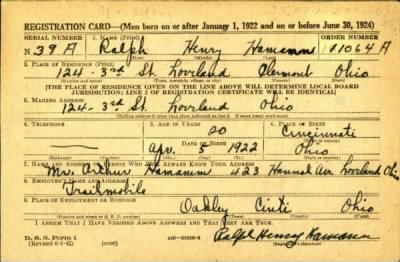 REGISTRATION CARD—(Men born on or after January 1, 1922 and on or before June 30, 1924)
SERIAL NUMBER 1. NAME (Print) ORDER NUMBER
N 39 A Ralph Henry Hamann 11064 A
(First) (Middle) (Last)
2. PLACE OF RESIDENCE (Print)
124-3rd St. Loveland Clermont Ohio
(Number and street) (Town, township, village, or city) (County) (State)
[THE PLACE OF RESIDENCE GIVEN ON THE LINE ABOVE WILL DETERMINE LOCAL BOARD
JURISDICTION; LINE 2 OF REGISTRATION CERTIFICATE WILL BE IDENTICAL]
3. MAILING ADDRESS
124-3rd St. Loveland Ohio
4. TELEPHONE 5. AGE IN YEARS 6. PLACE OF BIRTH
20 Cincinnati
DATE OF BIRTH
Apr. 5 1922 Ohio
(Exchange) (Number) (Mo.) (Day) (Yr.) (State or country)
7. NAME AND ADDRESS OF PERSON WHO WILL ALWAYS KNOW YOUR ADDRESS
Mr. Arthur Hamann 423 Hannah Ave. Loveland Ohio
8. EMPLOYER'S NAME AND ADDRESS
Trailmobile
9. PLACE OF EMPLOYMENT OR BUSINESS
Oakley Cinti Ohio
(Number and street or R. F. D. number) (Town) (County) (State)
I AFFIRM THAT I HAVE VERIFIED ABOVE ANSWERS AND THAT THEY ARE TRUE.
D. S. S. Form 1
(Revised 6-1-42) (over) Ralph Henry Hamann